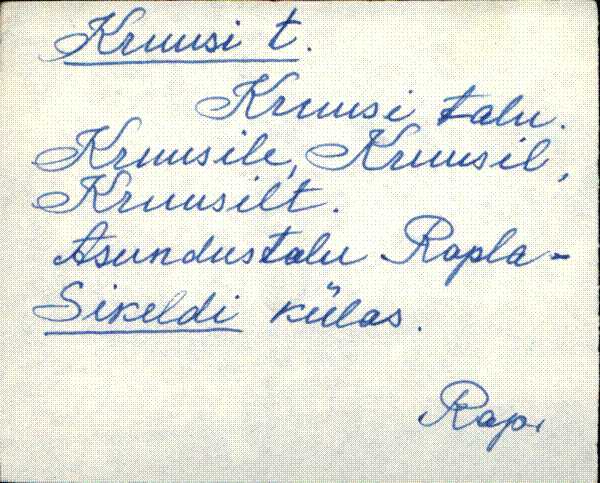 Kruusi t.
Kruusi talu.
Kruusile, Kruusil,
Kruusilt.
Asundustalu Rapla-
Sikeldi külas.
Rap.